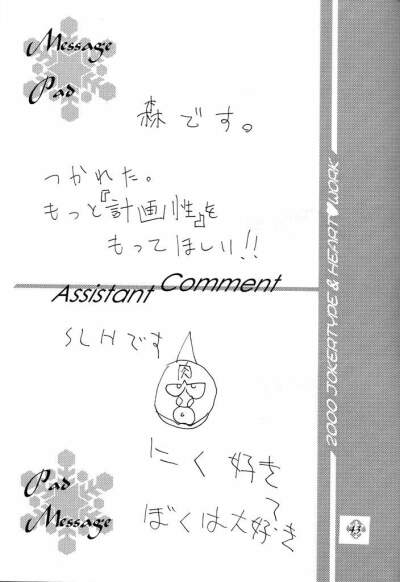 Message
Pad
森です。
つかれた。
もっと『計画性』を
もってほしい!!
Assistant Comment
SLHです
肉
にく好き
ぼくは大好き?
Pad
Message
2000 JOKERTYPE & HEART♥WORK
43